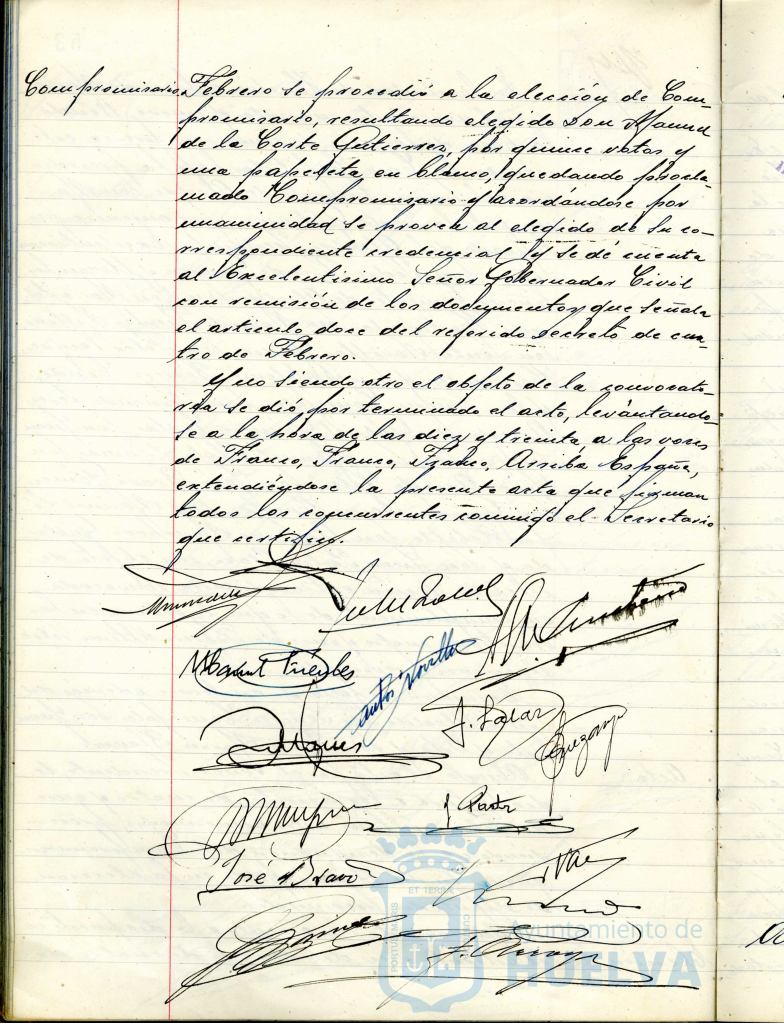 Compromisario. Febrero se procedió a la elección de Com-
promisario, resultando elegido Don Manuel
de la Corte Gutierrez, por quince votos y
una papeleta en blanco, quedando procla-
mado Compromisario y acordándose por
unanimidad se provea al elegido de su co-
rrespondiente credencial y se dé cuenta
al Excelentisimo Señor Gobernador Civil
con remisión de los documentos que señala
el articulo doce del referido Decreto de cua-
tro de Febrero.
Y no siendo otro el objeto de la convocato-
ria se dió por terminado el acto, levántando-
se a la hora de las diez y treinta a las voces
de Franco, Franco, Franco, Arriba España,
extendiéndose la presente acta que firman
todos los concurrentes conmigo el Secretario
que certifico.
J. Salas
José Bravo
ET TERRAE
PORTUS MARIS
CUSTODIA
Ayuntamiento de
HUELVA